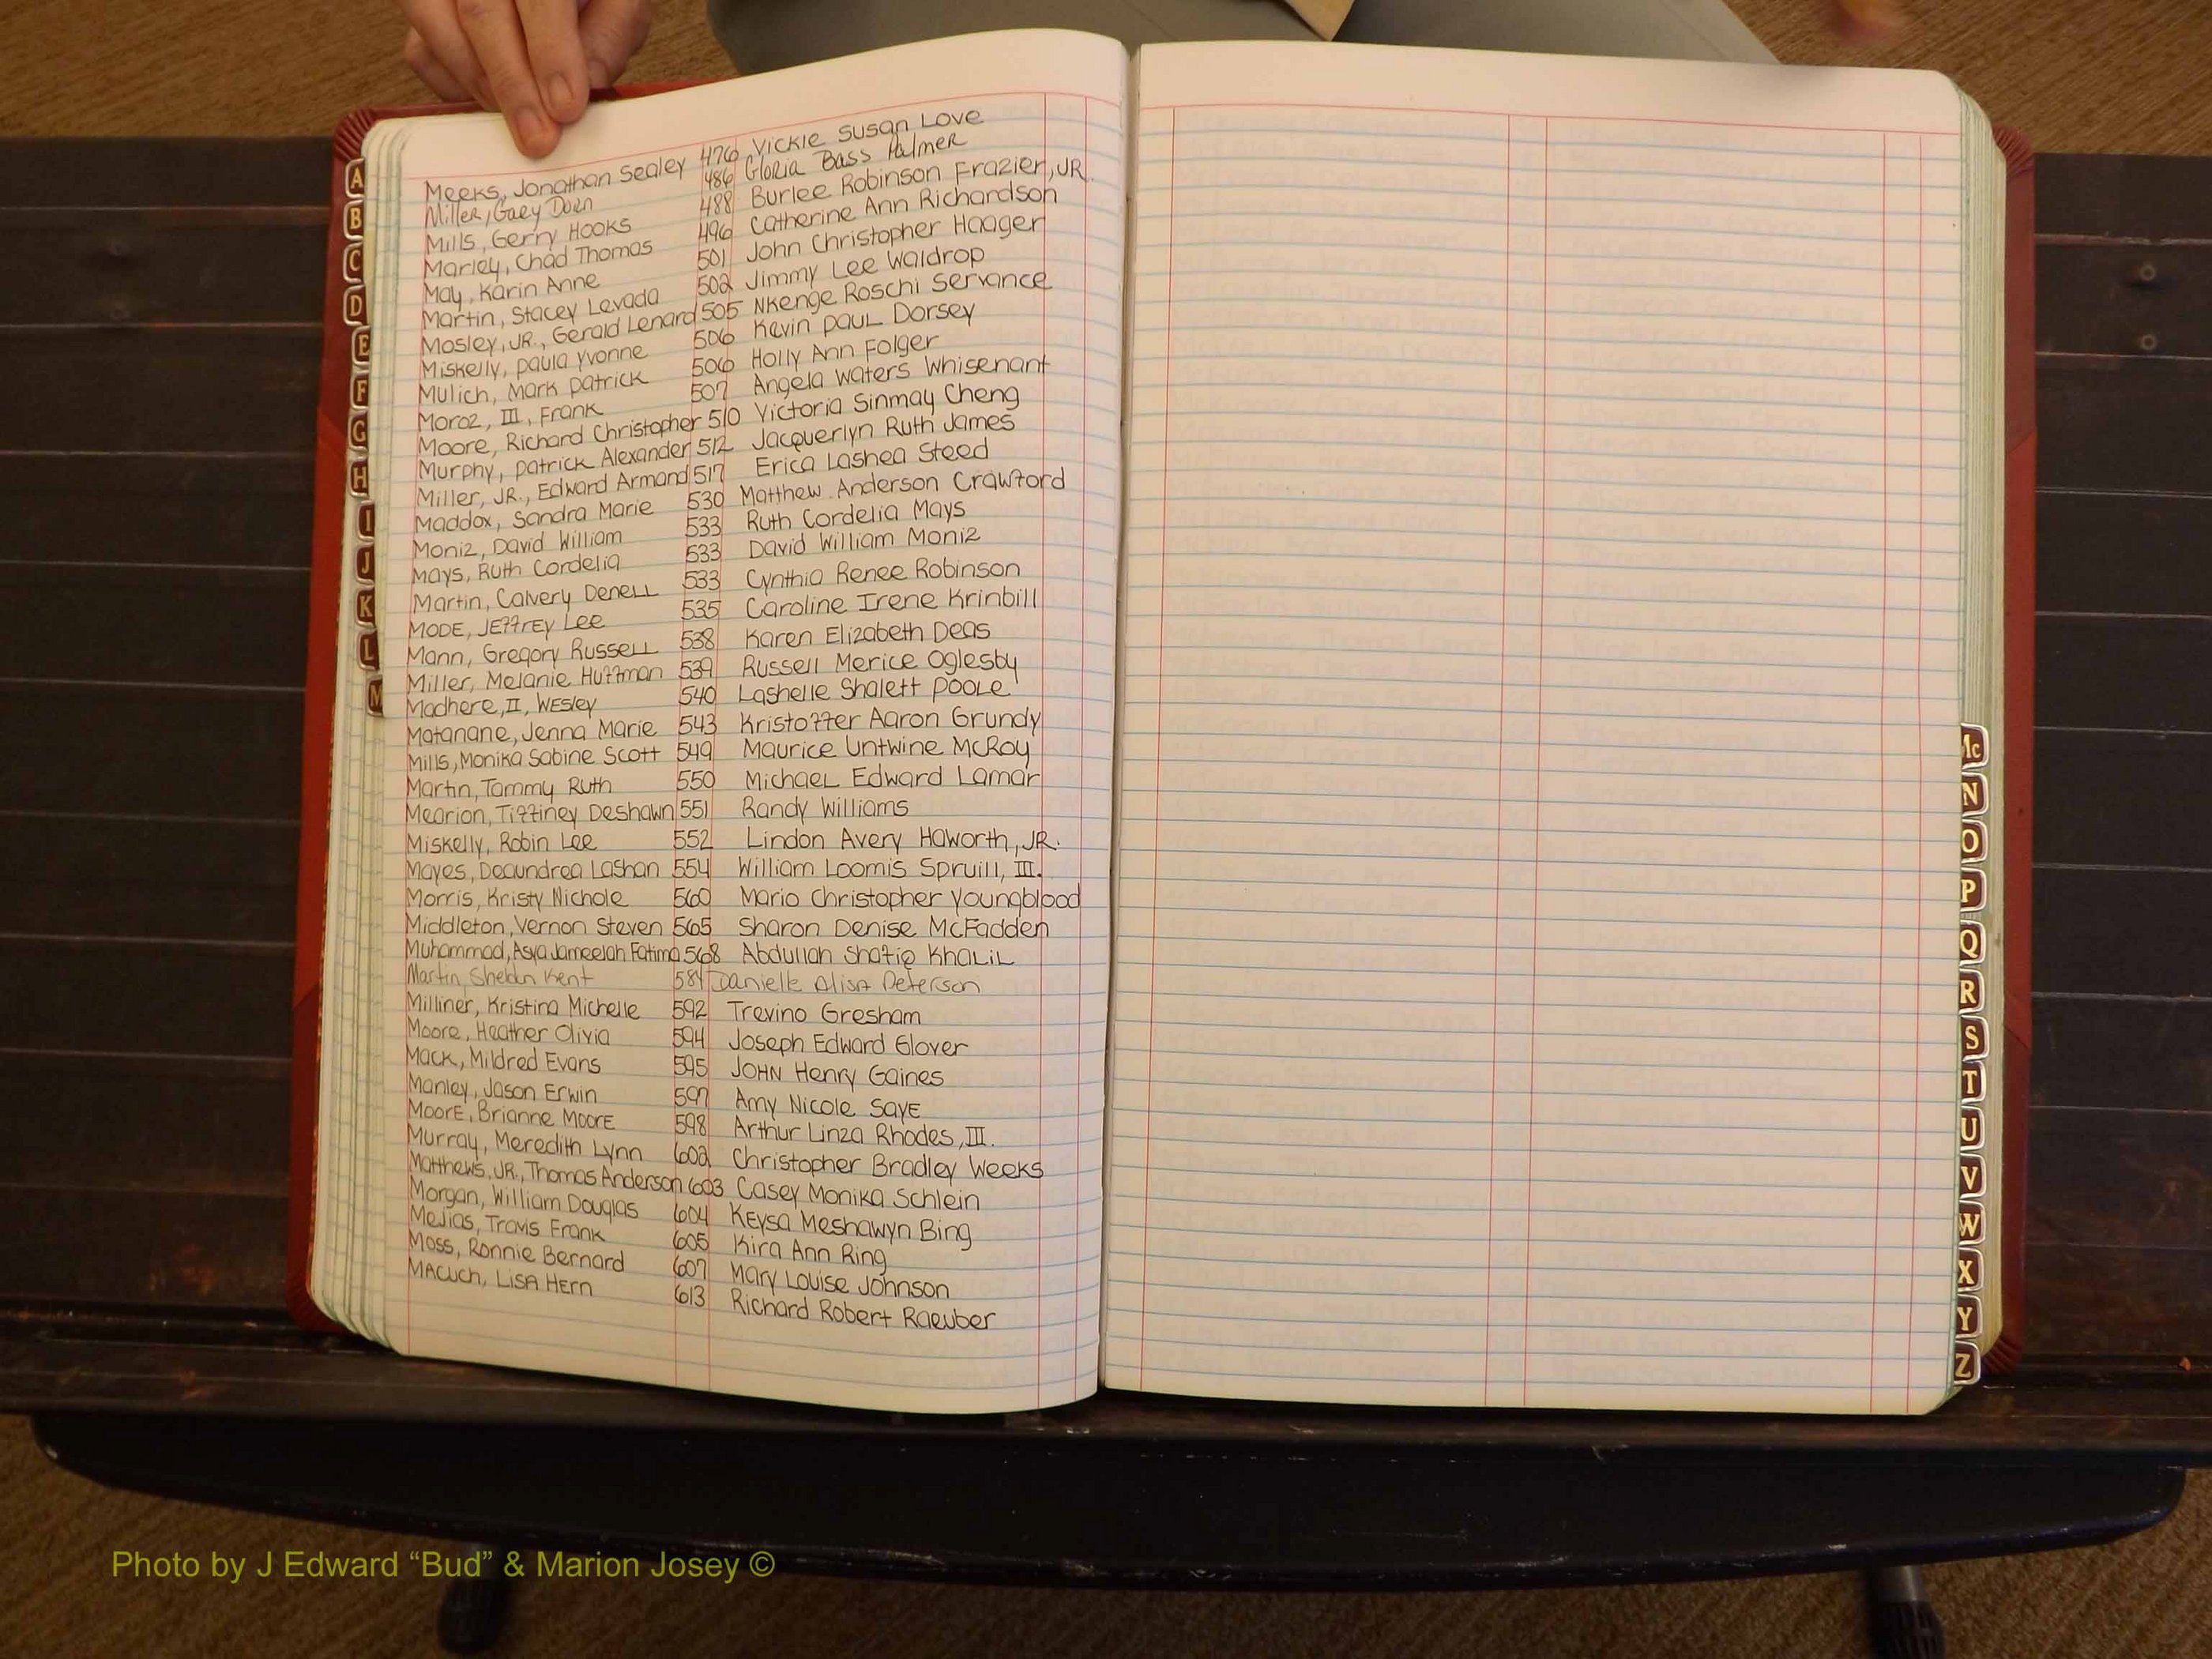 Meeks, Jonathan Sealey 476 Vickie Susan Love
Miller, Gary Doen 486 Gloria Bass Palmer
Mills, Gerry Hooks 488 Burlee Robinson Frazier, JR.
Marley, Chad Thomas 496 Catherine Ann Richardson
May, Karin Anne 501 John Christopher Haager
Martin, Stacey Levada 502 Jimmy Lee Waldrop
Mosley, JR., Gerald Lenard 505 Nkenge Roschi Servance
Miskelly, Paula Yvonne 506 Kevin Paul Dorsey
Mulich, Mark Patrick 506 Holly Ann Folger
Moroz, III, Frank 507 Angela Waters Whisenant
Moore, Richard Christopher 510 Victoria Sinmay Cheng
Murphy, Patrick Alexander 512 Jacquerlyn Ruth James
Miller, JR., Edward Armand 517 Erica Lashea Steed
Maddox, Sandra Marie 530 Matthew Anderson Crawford
Moniz, David William 533 Ruth Cordelia Mays
Mays, Ruth Cordelia 533 David William Moniz
Martin, Calvery Denell 533 Cynthia Renee Robinson
Mode, Jeffrey Lee 535 Caroline Irene Krinbill
Mann, Gregory Russell 538 Karen Elizabeth Deas
Miller, Melanie Huffman 539 Russell Merice Oglesby
Madhere, II, Wesley 540 Lashelle Shalett Poole
Matanane, Jenna Marie 543 Kristoffer Aaron Grundy
Mills, Monika Sabine Scott 549 Maurice Untwine McRoy
Martin, Tammy Ruth 550 Michael Edward Lamar
Mearion, Tiffiney Deshawn 551 Randy Williams
Miskelly, Robin Lee 552 Lindon Avery Haworth, JR.
Mayes, Deaundrea LaShan 554 William Loomis Spruill, III.
Morris, Kristy Nichole 560 Mario Christopher Youngblood
Middleton, Vernon Steven 565 Sharon Denise McFadden
Muhammad, Asya Jameelah Fatima 568 Abdullah Shafiq Khalil
Martin, Sheldn Kent 584 Danielle Alisa Peterson
Milliner, Kristina Michelle 592 Trevino Gresham
Moore, Heather Olivia 594 Joseph Edward Glover
Mack, Mildred Evans 595 John Henry Gaines
Manley, Jason Erwin 597 Amy Nicole Saye
Moore, Brianne Moore 598 Arthur Linza Rhodes, III.
Murray, Meredith Lynn 602 Christopher Bradley Weeks
Matthews, JR., Thomas Anderson 603 Casey Monika Schlein
Morgan, William Douglas 604 Keysa Meshawyn Bing
Mejias, Travis Frank 605 Kira Ann Ring
Moss, Ronnie Bernard 607 Mary Louise Johnson
Macuch, Lisa Hern 613 Richard Robert Raeuber
A
B
C
D
E
F
G
H
I
J
K
L
M
Mc
N
O
P
Q
R
S
T
U
V
W
X
Y
Z
Photo by J Edward “Bud” & Marion Josey ©